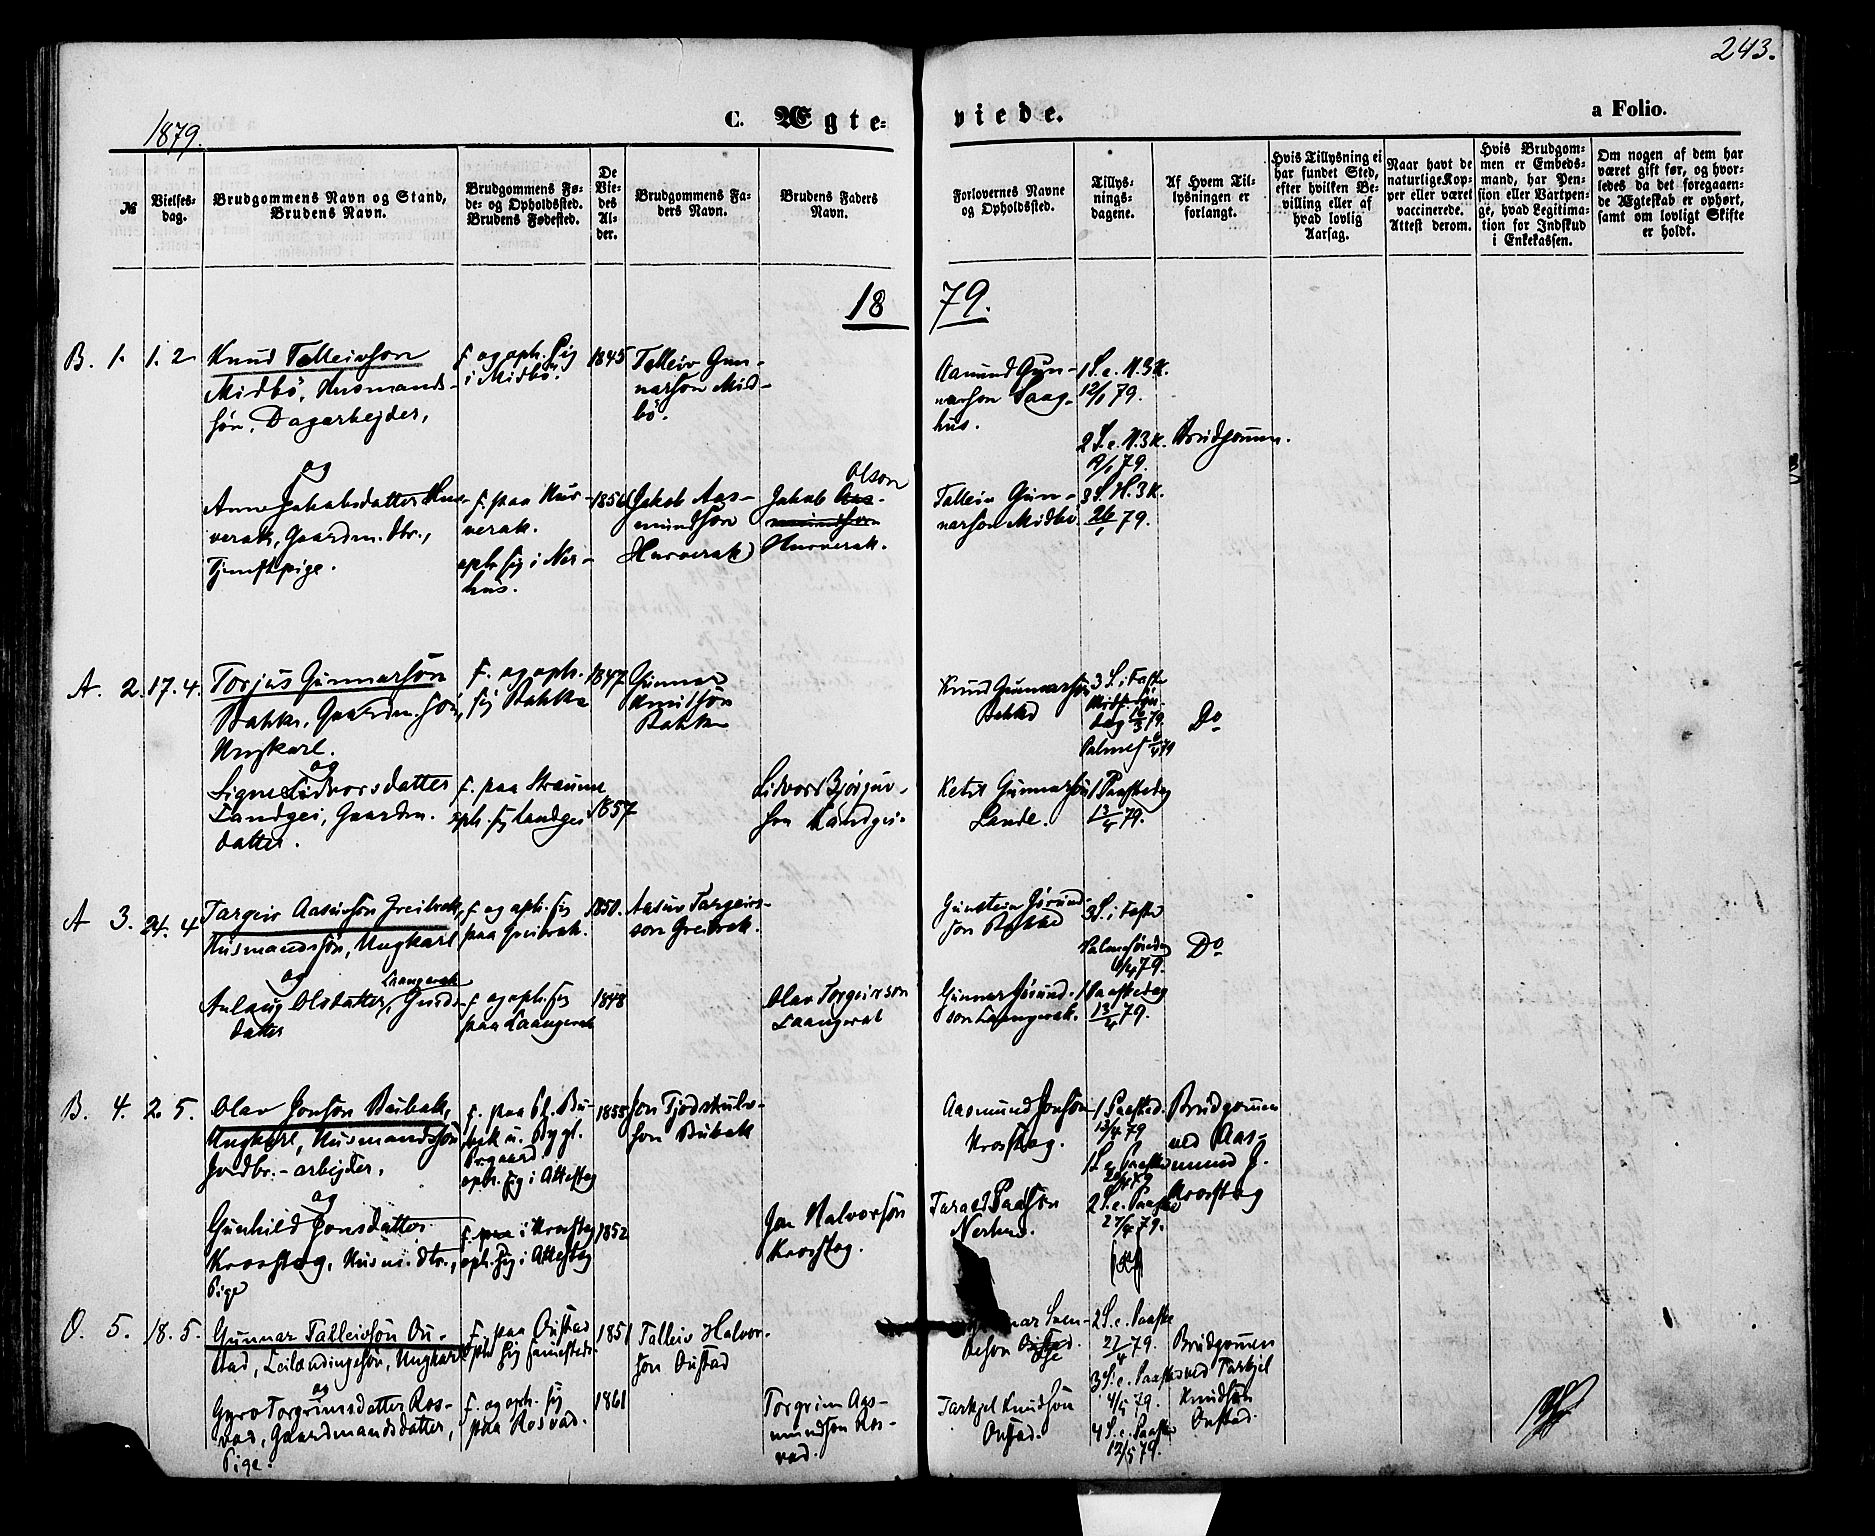 243.
1879.
C. Ægte-
viede.
a Folio.
№
Vielses-
dag.
Brudgommens Navn og Stand,
Brudens Navn.
Brudgommens Fø-
de- og Opholdssted.
Brudens Fødested.
De
Vie-
des
Al-
der.
Brudgommens Fa-
ders Navn.
Brudens Faders
Navn.
Forlovernes Navne
og Opholdssted.
Tillys-
nings-
dagene.
Af Hvem Til-
lysningen er
forlangt.
Hvis Tillysning ei
har fundet Sted,
efter hvilken Be-
villing eller af
hvad lovlig
Aarsag.
Naar havt de
naturlige Kop-
per eller været
vaccinerede.
Attest derom.
Hvis Brudgom-
men er Embeds-
mand, har Pen-
sion eller Vartpen-
ge, hvad Legitima-
tion for Indskud
i Enkekassen.
Om nogen af dem har
været gift før, og hvor-
ledes da det foregaaen-
de Ægteskab er ophørt,
samt om lovligt Skifte
er holdt.
18 79.
B. 1. 1. 2
Knud Talleivson
Midbö, Husmands-
søn, Dagarbejder,
og
Anne Jakobsdatter Hus-
verak, Gaardm. dtr.,
Tjenestpige.
f. og oph. sig
i Midbö.
f. paa Hus-
verak.
oph. sig i Ner-
hus.
1845
1856
Talleiv Gun-
narson Mid-
bö.
(Jakob Aas-
mundson
Husverak)
Olson
Jakob Aas-
mundson
Husverak.
Aamund Gun-
narson Haag-
hus.
Talleiv Gun-
narson Midbö
1 S. e. H. 3 K.
12/1 79.
2 S. e. H. 3 K.
19/1 79.
3 S. H. 3 K.
26/1 79.
Brudgommen.
A. 2. 17. 4.
Torjus Gunnarsön
Bakka, Gaardm. søn,
Ungkarl.
og
Signe Lidvorsdatter
Landgei, Gaardm.
datter.
f. og oph.
sig Bakka
f. paa Straume
oph. sig Landgei
1847
1857
Gunnar
Knudsön
Bakka
Lidvord Bjørguv-
son Landgei.
Knud Gunnarsön
Bakka
Ketil Gunnarsön
Lande.
3 S. i Faste
16/3 79.
Palmes 6/4 79
1 Paaskedag
13/4 79.
Do
A 3. 24. 4
Targeir Aasuvsön Greibrak,
Husmandssön, Ungkarl
og
Laangerak
Aslaug Olsdatter, Gaards-
datter
f. og oph. sig
paa Greibrak.
f. og oph. sig
paa Laangerak
1850.
1848
Aasuv Targeirs-
son Greibrak.
Olav Torgeirson
Laangerak
Gunstein Jörund-
son Bakka
Gunnar Jörund-
son Laangerak.
3 S. i Faste
Palmesöndag
6/4 79.
1 Paaskedag
13/4 79.
Do
B. 4. 2. 5.
Olav Jonsön Bubak,
Ungkarl, Husmandssön
Jordbr.-arbejder,
og
Gunhild Jonsdatter
Krosstag, Husm. dtr.,
Pige
f. paa Pl. Bu-
bak u. Bygl.
Prgaard
oph. sig i Attestog
f. paa i Krosstag
oph. sig i Attestog
1855
1852
Jon Tjodskulv-
son Bubak
Jon Halvorsön
Krosstag.
Aasmund Jonson
Krosstag.
Tarald Paalson
Nerhus.
1 Paasked.
13/4 79
1 S. e. Paaske
20/4 79
2 S. e. Paaske
27/4 79.
Brudgommen
ved Aas-
mund J.
Krosstag
O. 5. 18. 5.
Gunnar Talleivsön Ou-
stad, Leilændingesøn, Ungkarl
og
Gyro Torgrimsdatter Ros-
vad, Gaardmandsdatter,
Pige.
f. paa Oustad
oph. sig sammesteds.
f. og oph. sig
paa Rosvad.
1851
1861
Talleiv Halvor-
son Oustad
Torgrim Aas-
mundson Ros-
vad.
Tarkjel Knudsön
Oustad.
2 S. e. Paaske
27/4 79.
3 S. e. Paaske
4/5 79.
4 S. e. Paaske
12/5 79.
Brudgommen
ved Tarkjel
Knudsön
Oustad.